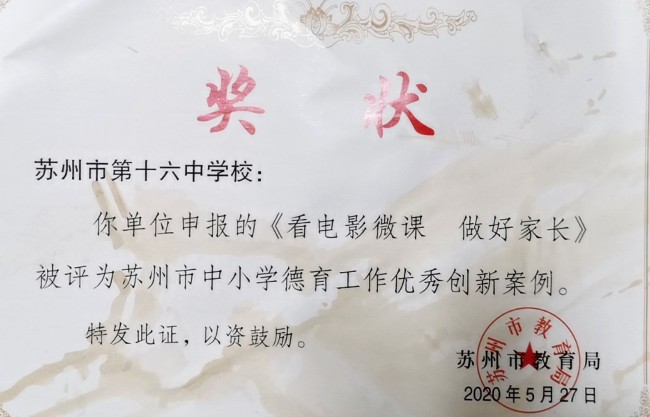 奖 状
苏州市第十六中学校：
你单位申报的《看电影微课 做好家长》
被评为苏州市中小学德育工作优秀创新案例。
特发此证，以资鼓励。
苏州市教育局
苏州市教育局
2020年5月27日